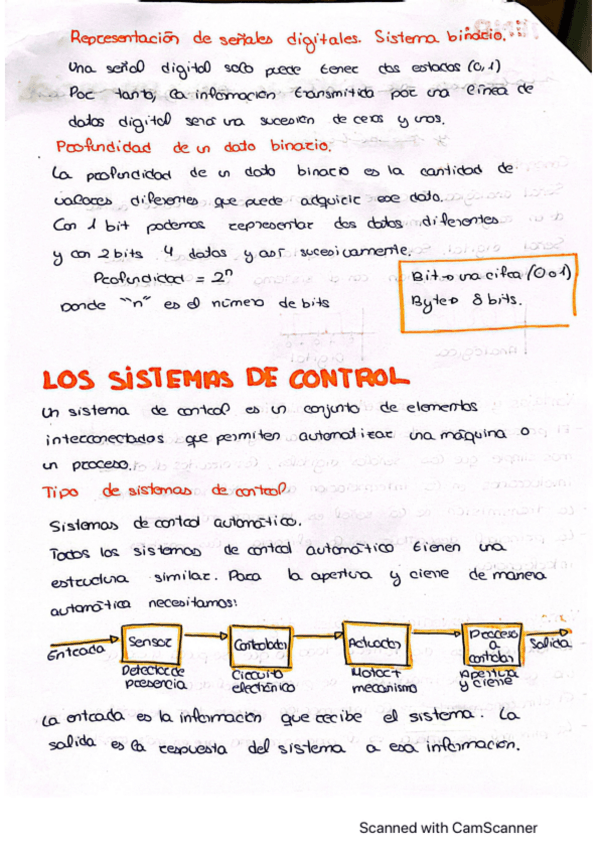 Representación de señales digitales. Sistema binario.
Una señal digital solo puede tener dos estados (0,1)
Por tanto, la información transmitida por una línea de
datos digital será una sucesión de ceros y unos.
Profundidad de un dato binario.
La profundidad de un dato binario es la cantidad de
valores diferentes que puede adquirir ese dato.
Con 1 bit podemos representar dos datos diferentes
y con 2 bits 4 datos y así sucesivamente.
Profundidad = 2ⁿ
Donde "n" es el número de bits
Bit → una cifra (0 o 1)
Byte → 8 bits.
LOS SISTEMAS DE CONTROL
Un sistema de control es un conjunto de elementos
interconectados que permiten automatizar una máquina o
un proceso.
Tipo de sistemas de control.
Sistemas de control automático.
Todos los sistemas de control automático tienen una
estructura similar. Para la apertura y cierre de manera
automática necesitamos:
Entrada
Sensor
Controlador
Actuador
Proceso a controlar
Salida
Detector de presencia
Circuito electrónico
Motor + mecanismo
Apertura y cierre
La entrada es la información que recibe el sistema. La
salida es la respuesta del sistema a esa información.
Scanned with CamScanner